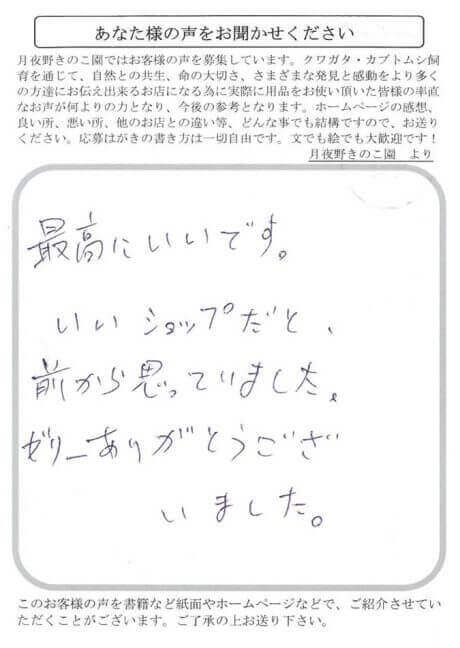 あなた様の声をお聞かせください
月夜野きのこ園ではお客様の声を募集しています。クワガタ・カブトムシ飼
育を通じて、自然との共生、命の大切さ、さまざまな発見と感動をより多く
の方達にお伝え出来るお店になる為に実際に用品をお使い頂いた皆様の率直
なお声が何よりの力となり、今後の参考となります。ホームページの感想、
良い所、悪い所、他のお店との違い等、どんな事でも結構ですので、お送り
ください。応募はがきの書き方は一切自由です。文でも絵でも大歓迎です！
月夜野きのこ園　より
最高にいいです。
いいショップだと、
前から思っていました。
ゼリーありがとうござ
いました。
このお客様の声を書籍など紙面やホームページなどで、ご紹介させてい
ただくことがございます。ご了承の上お送り下さい。